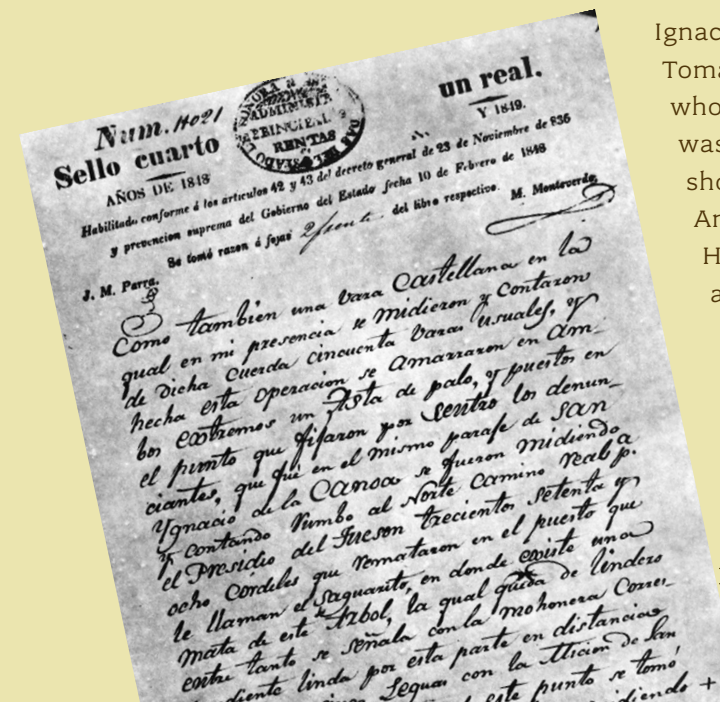 Ignac
Toma
who
was
sho
Ar
H
a
Num. 14021
Sello cuarto
un real.
AÑOS DE 1848
Y 1849.
SONORA
ADMINISTR
PRINCIPAL
RENTAS
DEL ESTADO DE
Habilitado conforme á los articulos 42 y 43 del decreto general de 23 de Noviembre de 836
y prevencion suprema del Gobierno del Estado fecha 10 de Febrero de 1848
Se tomó razon á fojas del libro respectivo. M. Monteverde,
J. M. Parra.
Como tambien una vara Castellana en la
qual en mi presencia se midieron y contaron
de dicha cuerda cincuenta varas usuales, y
hecha esta operacion se amarraron en am-
bos extremos un Asta de palo, y puestos en
el punto que fijaron por Sentro los denun-
ciantes, que fué en el mismo paraje de San
Ygnacio de la Canoa se fueron midiendo
y contando Rumbo al Norte Camino real pa.
el Presidio del Tucson trecientos setenta y
ocho Cordeles que remataron en el puesto que
le llaman el Saguarito, en donde existe una
mata de este Arbol, la qual queda de lindero
entre tanto se señala con la mohonera Corres-
diente linda por esta parte en distancia
Leguas con la Micion de San
este punto se tomó
midiendo +